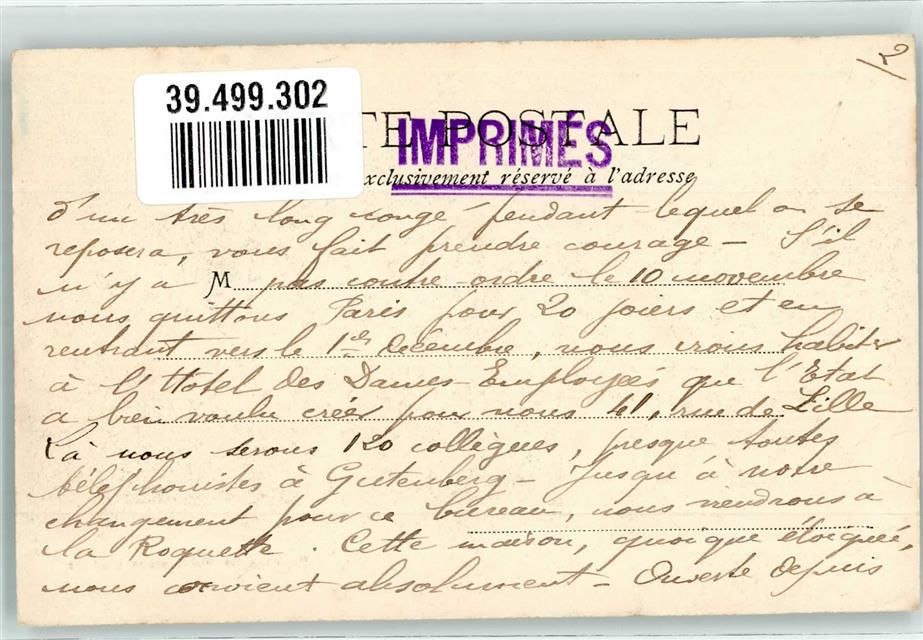 12
39.499.302
TE POSTALE
IMPRIMÉS
exclusivement réservé à l'adresse
d'un très long congé pendant lequel on se
reposera, vous fait prendre courage – S'il
n'y a M pas contre-ordre le 10 novembre
nous quittons Paris pour 20 jours et en
rentrant vers le 1er décembre, nous irons habiter
à l'Hôtel des Dames Employées que l'État
a bien voulu créer pour nous 41, rue de Lille
Là nous serons 120 collègues, presque toutes
téléphonistes à Gutenberg – Jusqu'à notre
changement pour ce bureau, nous viendrons à
la Roquette. Cette maison, quoique éloignée,
nous convient absolument – Ouverte depuis